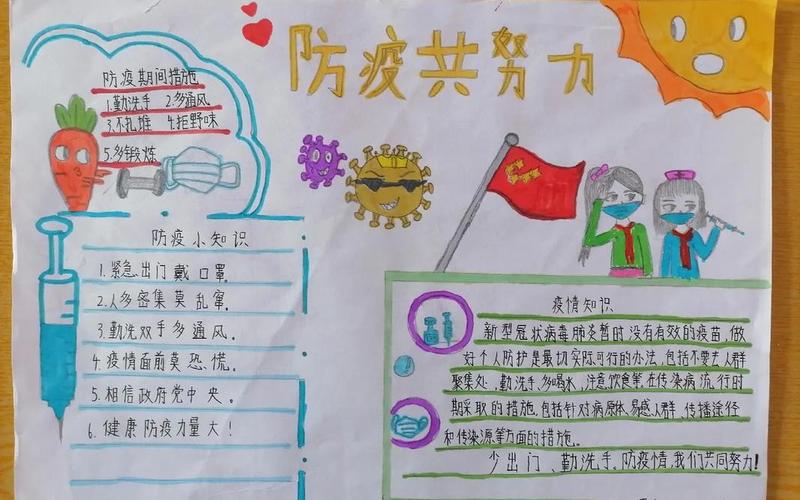 防疫共努力
防疫期间措施
1.勤洗手 2.多通风
3.不扎堆 4.拒野味
5.多锻炼
防疫小知识
1.紧急出门戴口罩。
2.人多密集莫乱窜。
3.勤洗双手多通风。
4.疫情面前莫恐慌。
5.相信政府党中央。
6.健康防疫力量大!
疫情知识
新型冠状病毒肺炎暂时没有有效的疫苗,做
好个人防护是最切实际可行的办法,包括不要去人群
聚集处、勤洗手、多喝水,注意饮食等,在传染病流行时
期采取的措施,包括针对病原体、易感人群、传播途径
和传染源等方面的措施。
少出门、勤洗手。防疫情,我们共同努力!